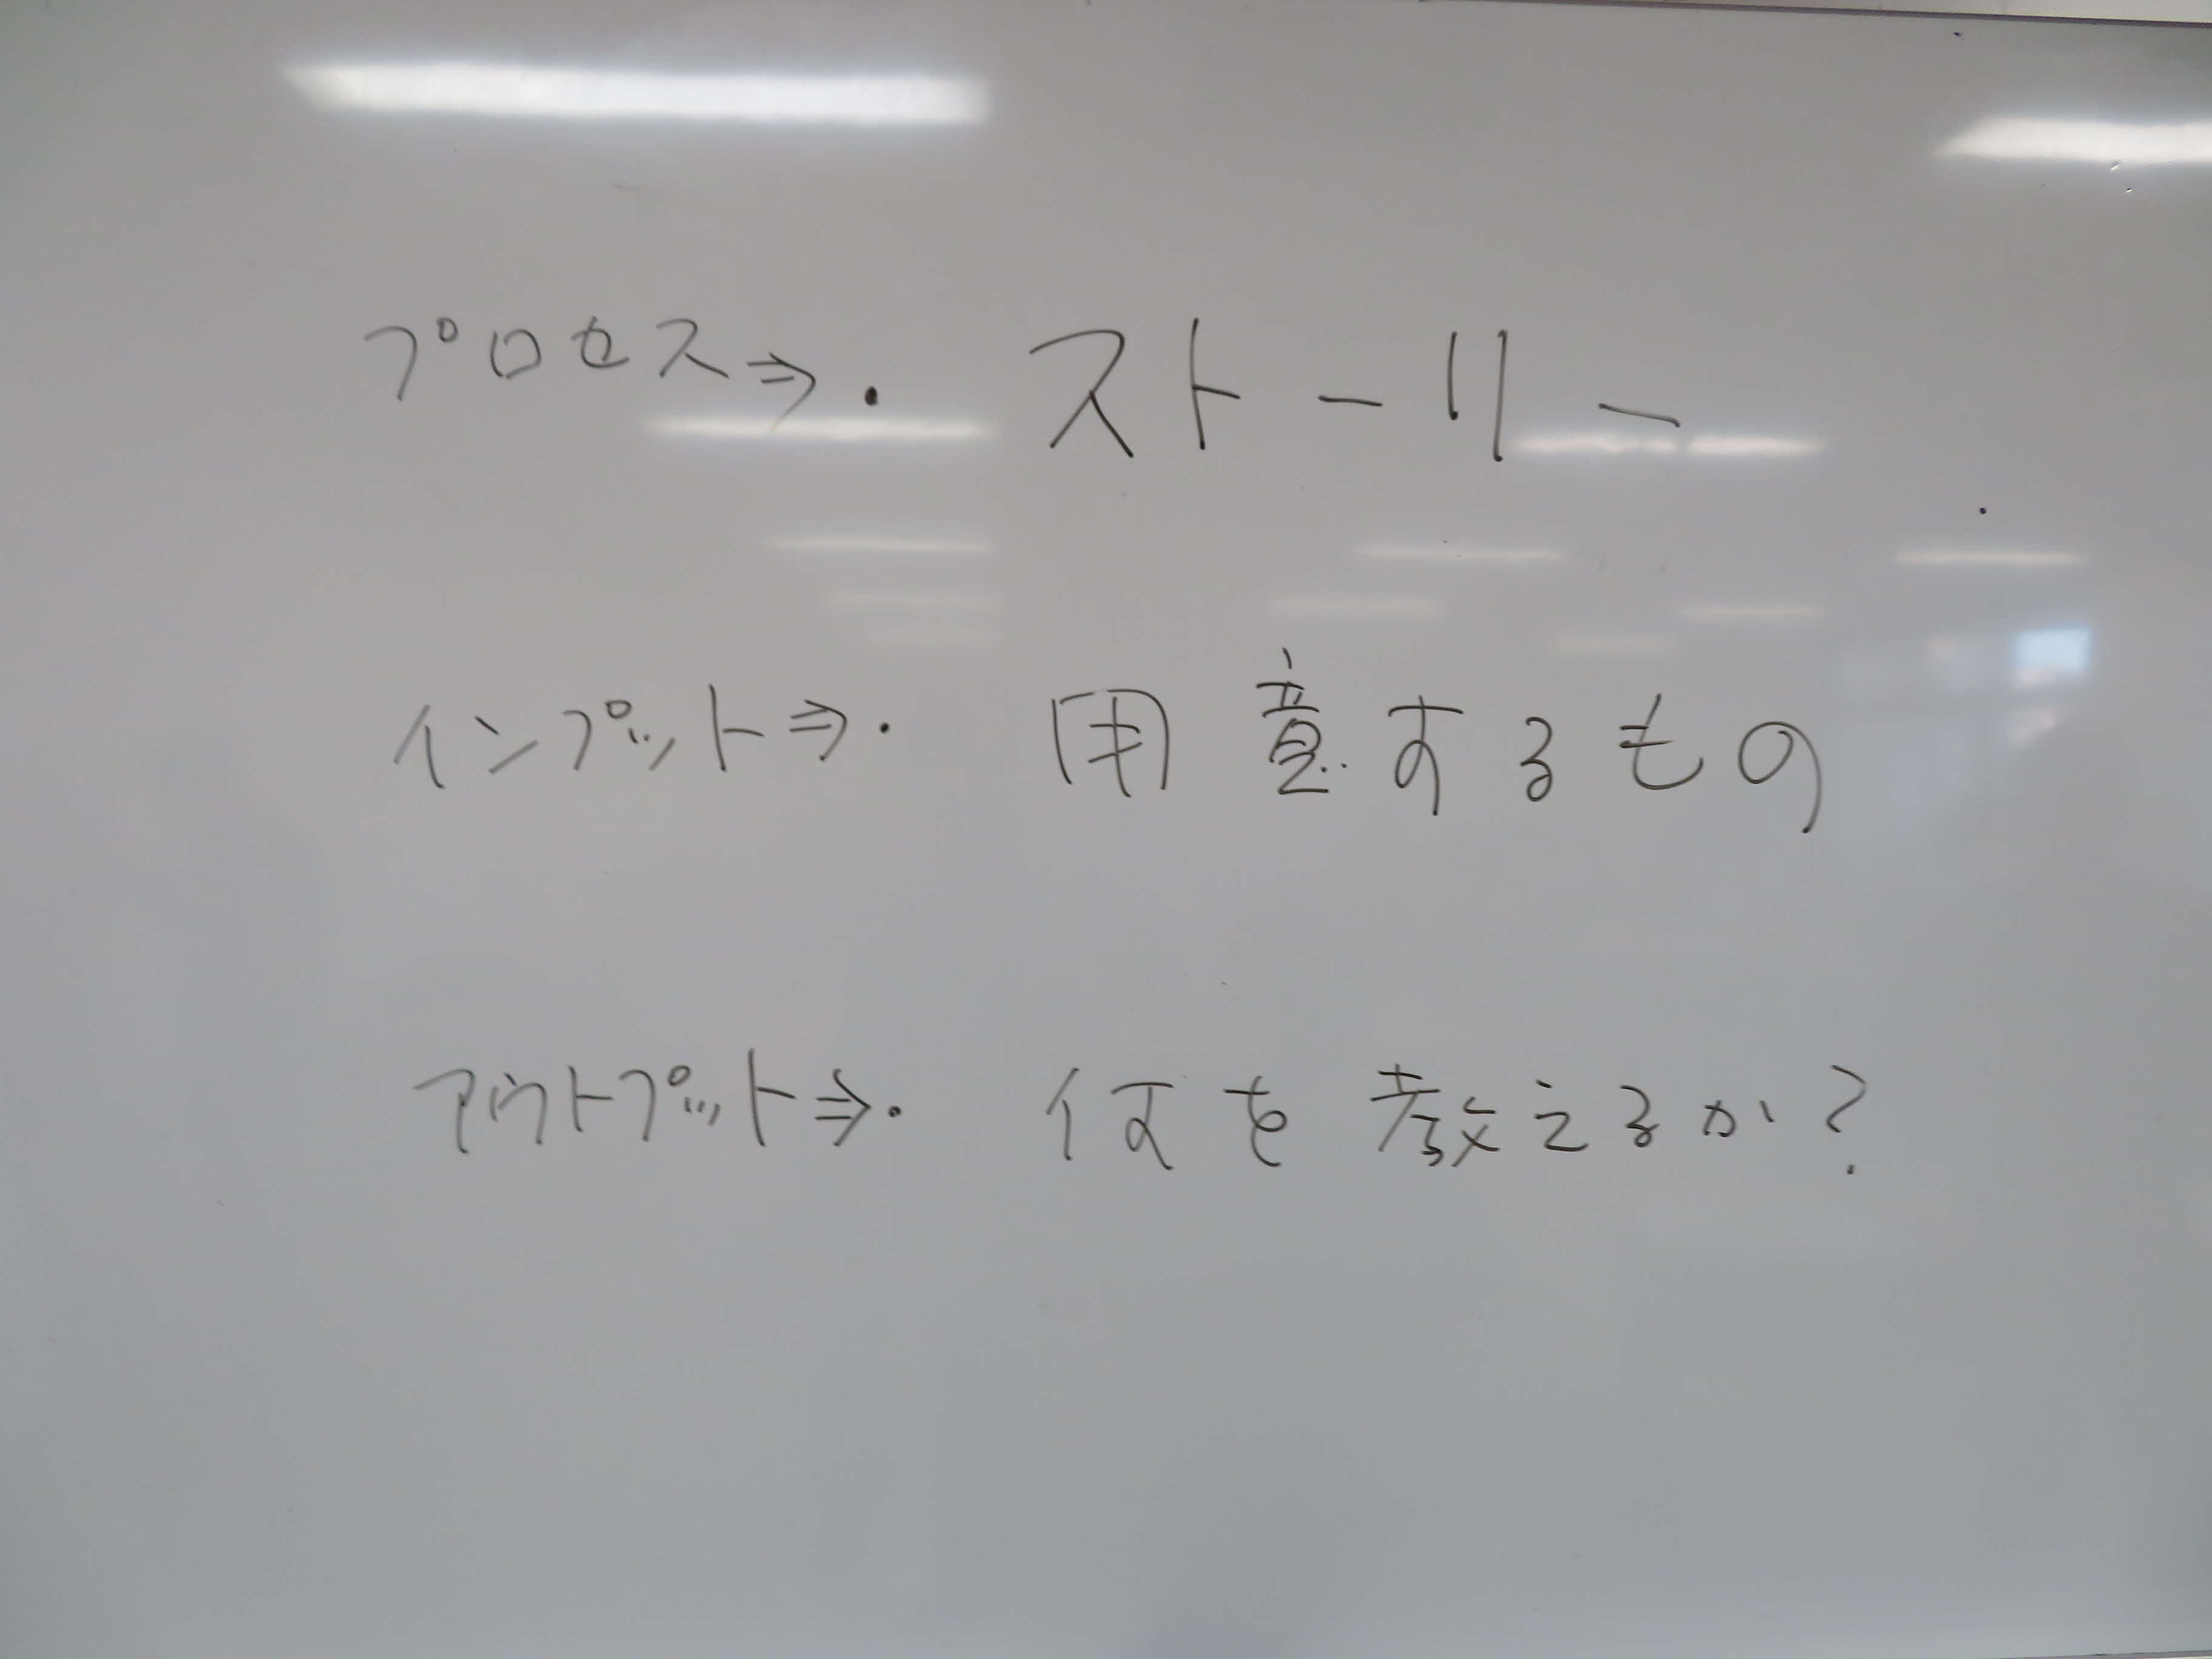 プロセス⇒・ストーリー
インプット⇒・用意するもの
アウトプット⇒・何を教えるか?